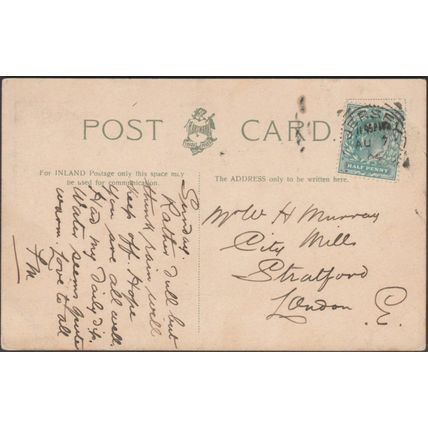 POST CARD.
For INLAND Postage only this space may
be used for communication.
The ADDRESS only to be written here.
JERSEY
AU 7
HALF PENNY
Sunday.
Rather dull but
think rain will
keep off. Hope
you are all well.
Had my daily dip.
Water seems quite
warm. Love to all
W H Murray
City Mills
Stratford
London. E.